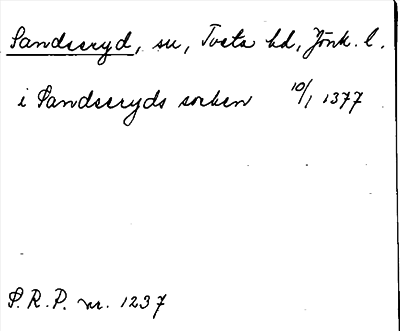 Sandseryd, sn, Tveta hd, Jönk. l.
i Sandseryds socken 10/1 1377
S.R.P. nr. 1237